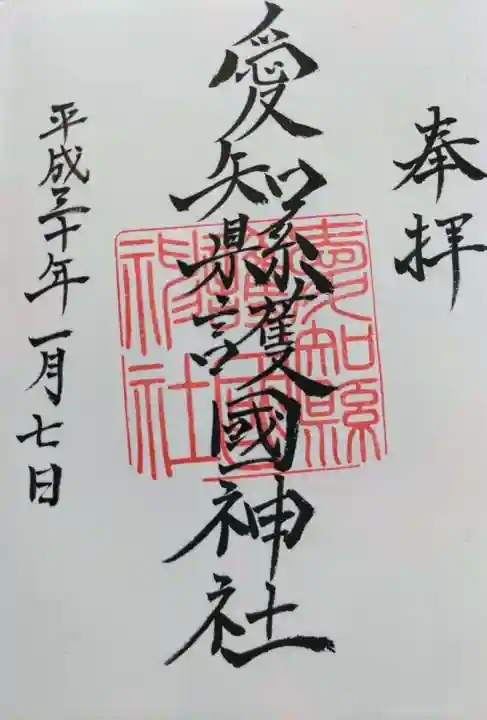 奉拝
愛知縣護國神社
愛知縣護國神社
平成三十年一月七日